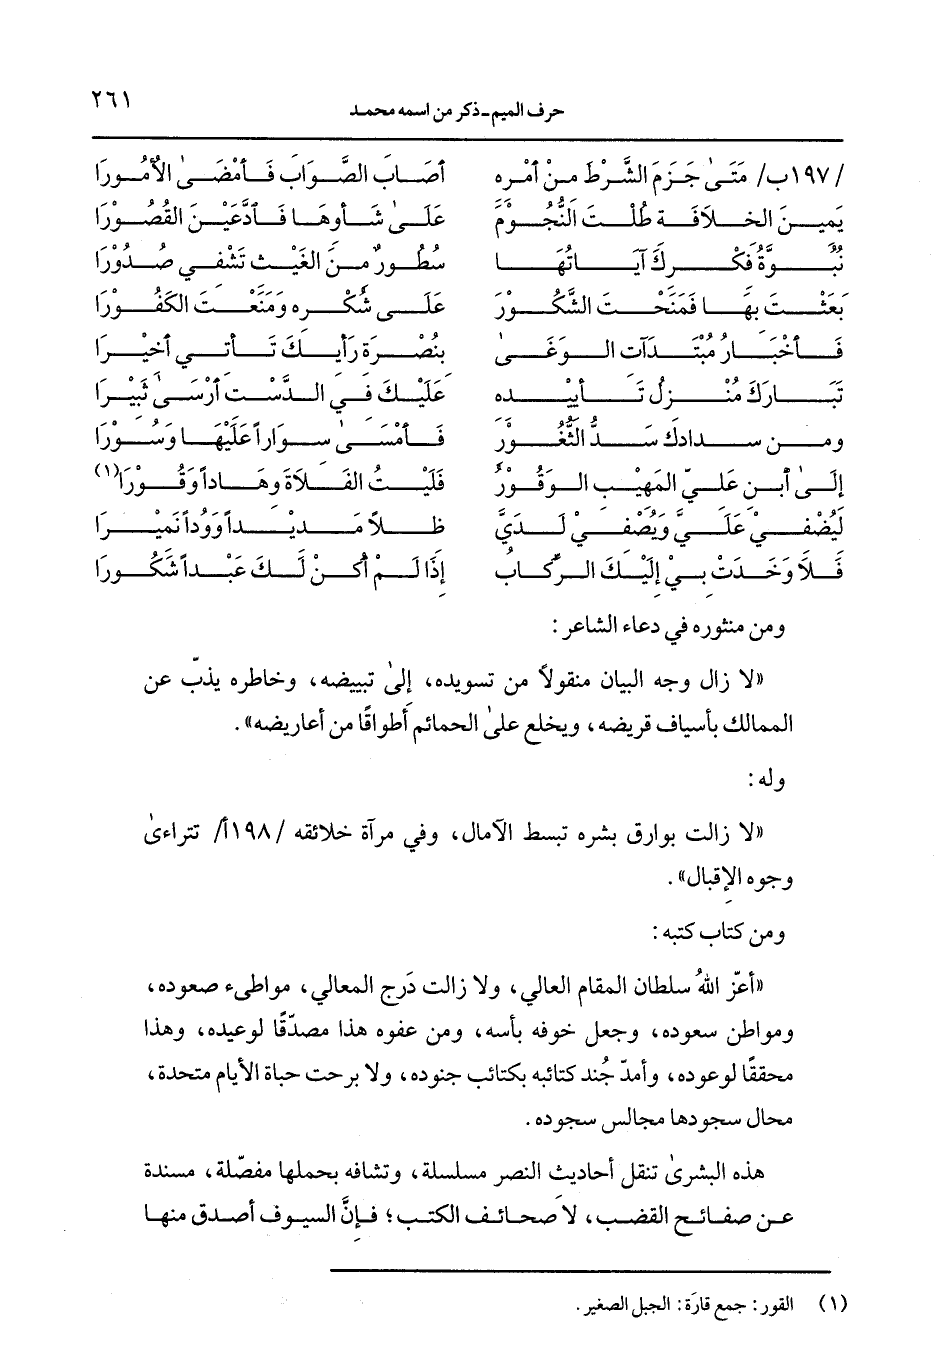 حرف الميم ـ ذكر من اسمه محمد ٢٦١
/١٩٧ب/ مَتَىٰ جَزَمَ الشَّرْطَ مِنْ أمْرِهِ أصَابَ الصَّوَابَ فَأمْضَىٰ الأمُورَا
يَمينَ الخلَافَةِ طُلْتَ النُّجُوْمَ عَلَىٰ شَأوِهَا فَادَّعَيْنَ القُصُوْرَا
نُبُوَّةُ فكْرِكَ آيَاتُهَا سُطُورٌ منَ الغَيْثِ تَشْفي صُدُوْرَا
بَعَثْتَ بِهَا فَمَنَحْتَ الشَّكُوْرَ عَلَىٰ شُكْرِهِ وَمَنَعْتَ الكَفُوْرَا
فَأخْبَارُ مُبْتَدَآتِ الوَغَىٰ بِنُصْرَةِ رَأيِكَ تَأتي أخيْرَا
تَبَارَكَ مُنْزِلُ تَأييْدِهِ عَلَيْكَ في الدَّسْتِ أرْسَىٰ ثَبيْرَا
ومن سدادك سَدُّ الثُّغُوْرِ فَأمْسَىٰ سِوَاراً عَلَيْهَا وَسُوْرَا
إلَىٰ أبنِ عَليِّ المَهيْبِ الوَقُوْرِ فَلَيْتُ الفَلَاةَ وِهَاداً وَقُوْرَا(١)
لَيُضْفيْ عَلَيَّ وَيُصْفيْ لَدَيَّ ظلاًّ مَديْداً وَوُداً نَميْرَا
فَلاَ وَخَدَتْ بيْ إلَيْكَ الرِّكَابُ إذَا لَمْ أكُنْ لَكَ عَبْداً شَكُورَا
ومن منثوره في دعاء الشاعر:
«لا زال وجه البيان منقولاً من تسويده، إلىٰ تبييضه، وخاطره يذبّ عن
الممالك بأسياف قريضه، ويخلع علىٰ الحمائم أطواقًا من أعاريضه».
وله:
«لا زالت بوارق بشره تبسط الآمال، وفي مرآة خلائقه /١٩٨أ/ تتراءىٰ
وجوه الإقبال».
ومن كتاب كتبه:
«أعزّ اللهُ سلطان المقام العالي، ولا زالت دَرج المعالي، مواطىء صعوده،
ومواطن سعوده، وجعل خوفه بأسه، ومن عفوه هذا مصدّقًا لوعيده، وهذا
محققًا لوعوده، وأمدّ جُند كتائبه بكتائب جنوده، ولا برحت حياة الأيام متحدة،
محال سجودها مجالس سجوده.
هذه البشرىٰ تنقل أحاديث النصر مسلسلة، وتشافه بحملها مفصّلة، مسندة
عن صفائح القضب، لا صحائف الكتب؛ فإنَّ السيوف أصدق منها
(١) القور: جمع قارَة: الجبل الصغير.